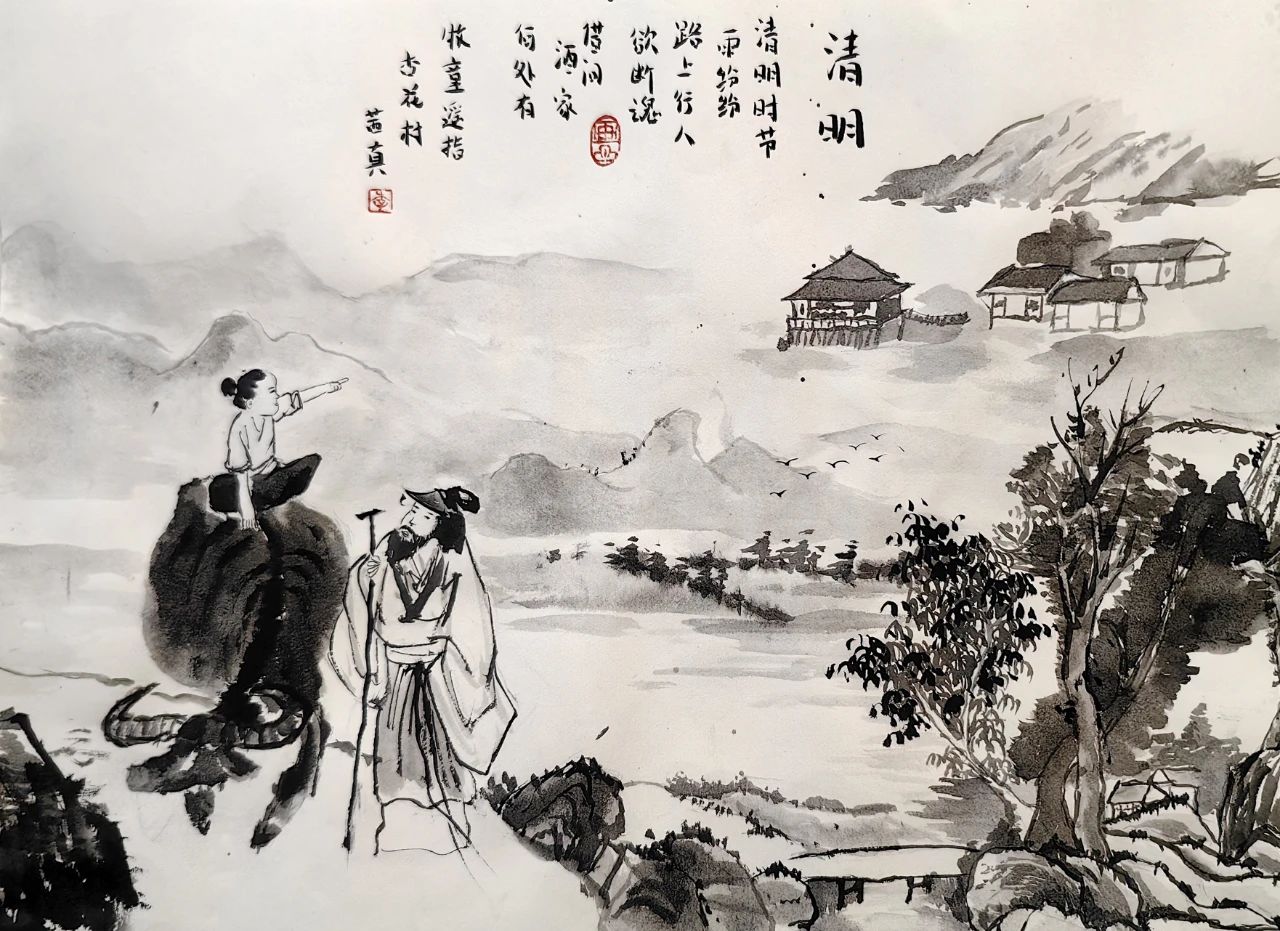 清明
清明时节
雨纷纷
路上行人
欲断魂
借问
酒家
何处有
牧童遥指
杏花村
茜真
李